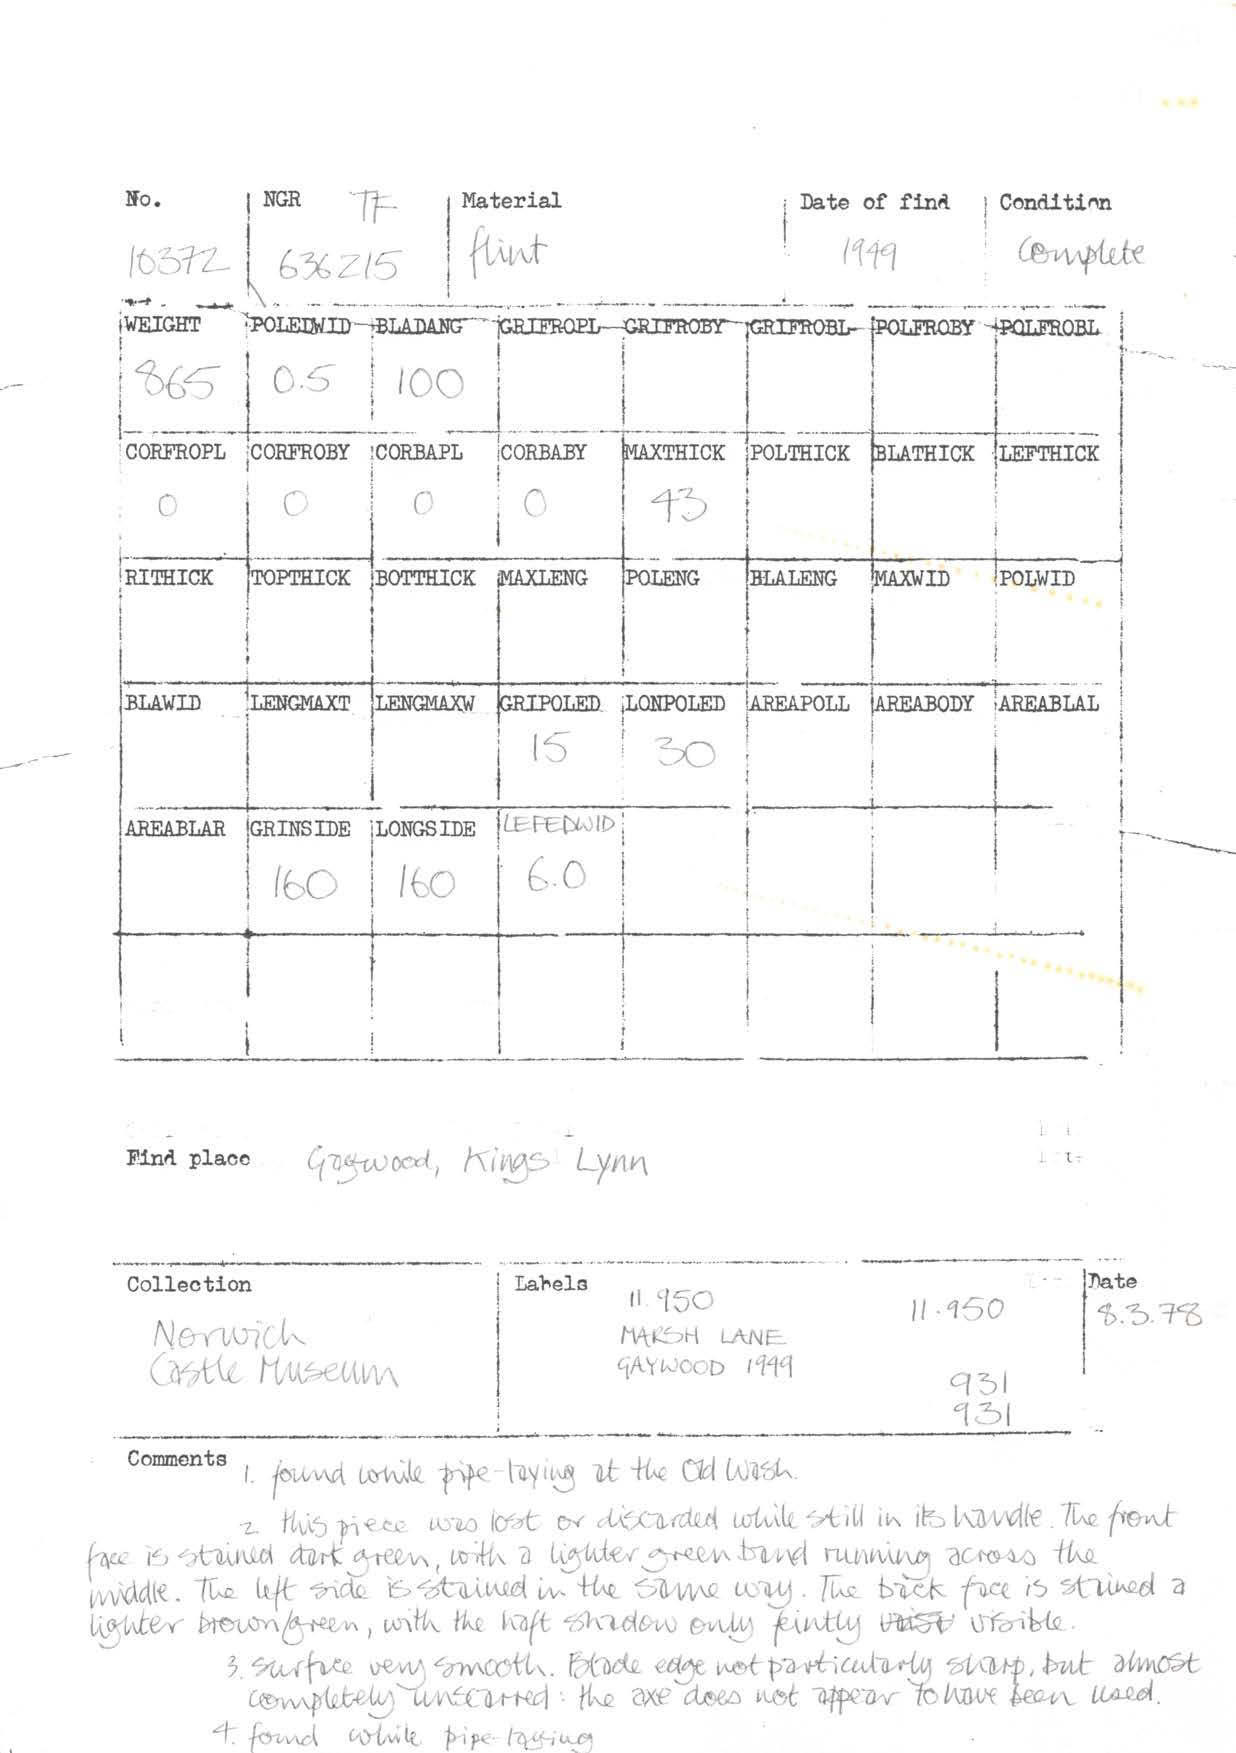 No. NGR TF Material Date of find Condition
10372 636215 flint 1949 Complete
WEIGHT POLEDWID BLADANG GRIFROPL GRIFROBY GRIFROBL POLFROBY POLFROBL
865 0.5 100
CORFROPL CORFROBY CORBAPL CORBABY MAXTHICK POLTHICK BLATHICK LEFTHICK
0 0 0 0 43
RITHICK TOPTHICK BOTTHICK MAXLENG POLENG BLALENG MAXWID POLWID
BLAWID LENGMAXT LENGMAXW GRIPOLED LONPOLED AREAPOLL AREABODY AREABLAL
15 30
AREABLAR GRINSIDE LONGSIDE LEFEDWID
160 160 6.0
Find place Gaywood, Kings Lynn
Collection Labels Date
11.950 11.950 8.3.78
Norwich MARSH LANE
Castle Museum GAYWOOD 1949
931
931
Comments 1. found while pipe-laying at the Old Wash.
2 this piece was lost or discarded while still in its handle. The front
face is stained dark green, with a lighter green band running across the
middle. The left side is stained in the same way. The back face is stained a
lighter brown/green, with the haft shadow only feintly visible.
3. surface very smooth. Blade edge not particularly sharp, but almost
completely unscarred: the axe does not appear to have been used.
4. found while pipe-laying